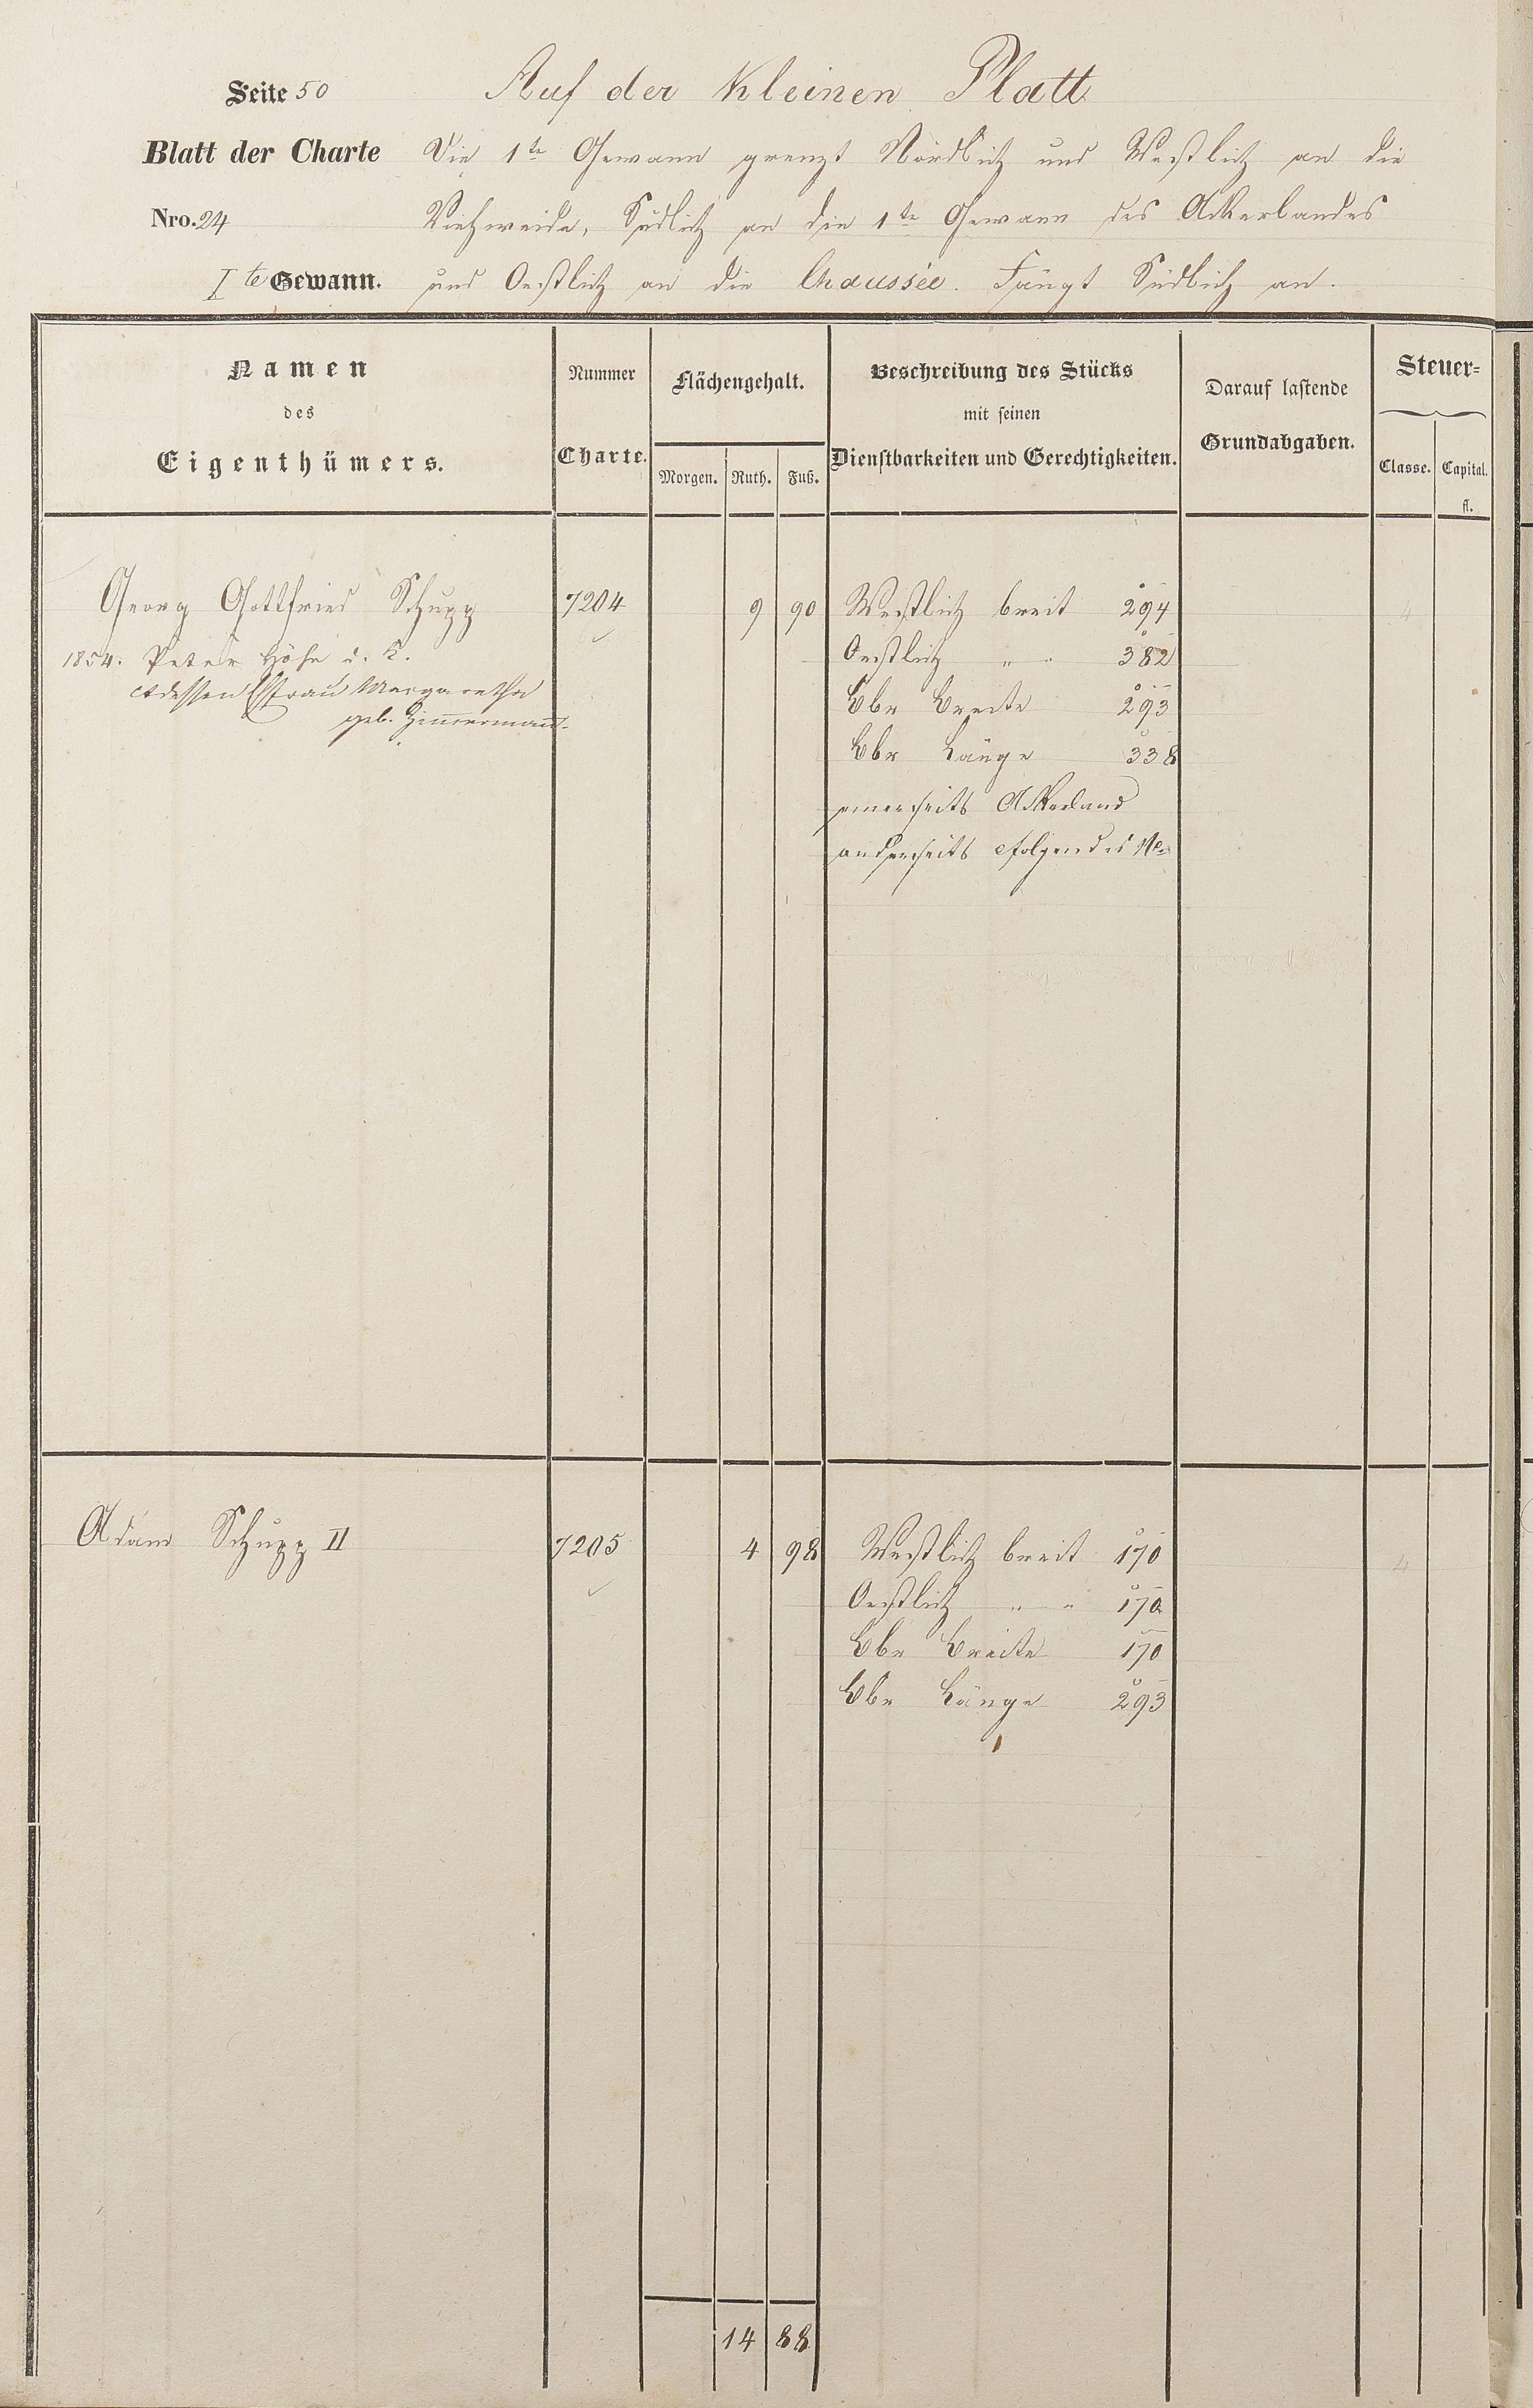 Seite 50 Auf der kleinen Platt
Blatt der Charte Die 1te Gewann grenzt Nördlich und Westlich an die
Nro. 24 Viehweide, Südlich an die 1te Gewann des Ackerlandes
Ite Gewann. und Oestlich an die Chaussée. Fängt Südlich an.
Namen
des
Eigenthümers.
Nummer
Charte.
Flächengehalt.
Morgen. Ruth. Fuß.
Beschreibung des Stücks
mit seinen
Dienstbarkeiten und Gerechtigkeiten.
Darauf lastende
Grundabgaben.
Steuer-
Classe. Capital.
fl.
Georg Gottfried Schupp 7204 9 90 Westlich breit 294 4
1854. Peter Höhn u. K. Oestlich " " 382
dessen Ehfrau Margaretha Ebr Breite 293
geb. Zimmermann
Ebr Länge 338
einerseits Ackerland
anderseits folgendes No
Adam Schupp II 7205 4 98 Westlich breit 170 4
Oestlich " " 170
Ebr Breite 170
Ebr Länge 293
14 88